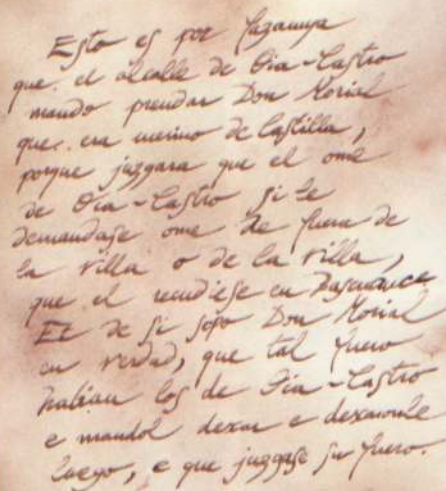 Esto es por fazannya
que. el alcalle de Oia-Castro
mando prendar Don Morial
que. era merino de Castilla,
porque juzgara que el ome
de Oia-Castro si le
demandase ome de fuera de
la villa o de la villa,
que el recudiese en bascuence.
Et de si sopo Don Morial
en verdad, que tal fuero
habian los de Oia-Castro
e mandol dexar e dexaronle
luego, e que juzgase su fuero.